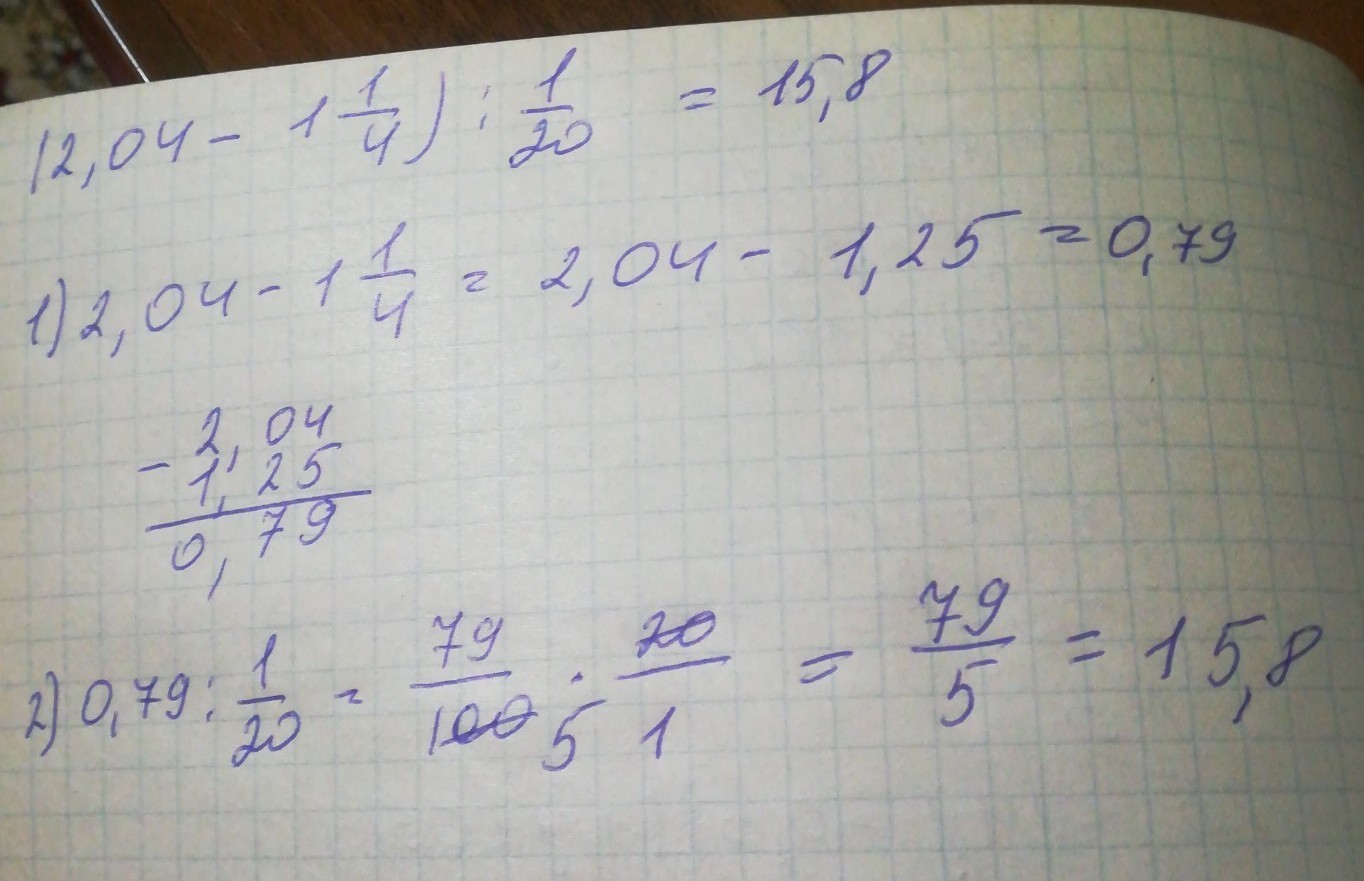 (2,04 - 1 1/4) : 1/20 = 15,8
1) 2,04 - 1 1/4 = 2,04 - 1,25 = 0,79
- 2,04
1,25
0,79
2) 0,79 : 1/20 = 79/100 5 · 20/1 = 79/5 = 15,8